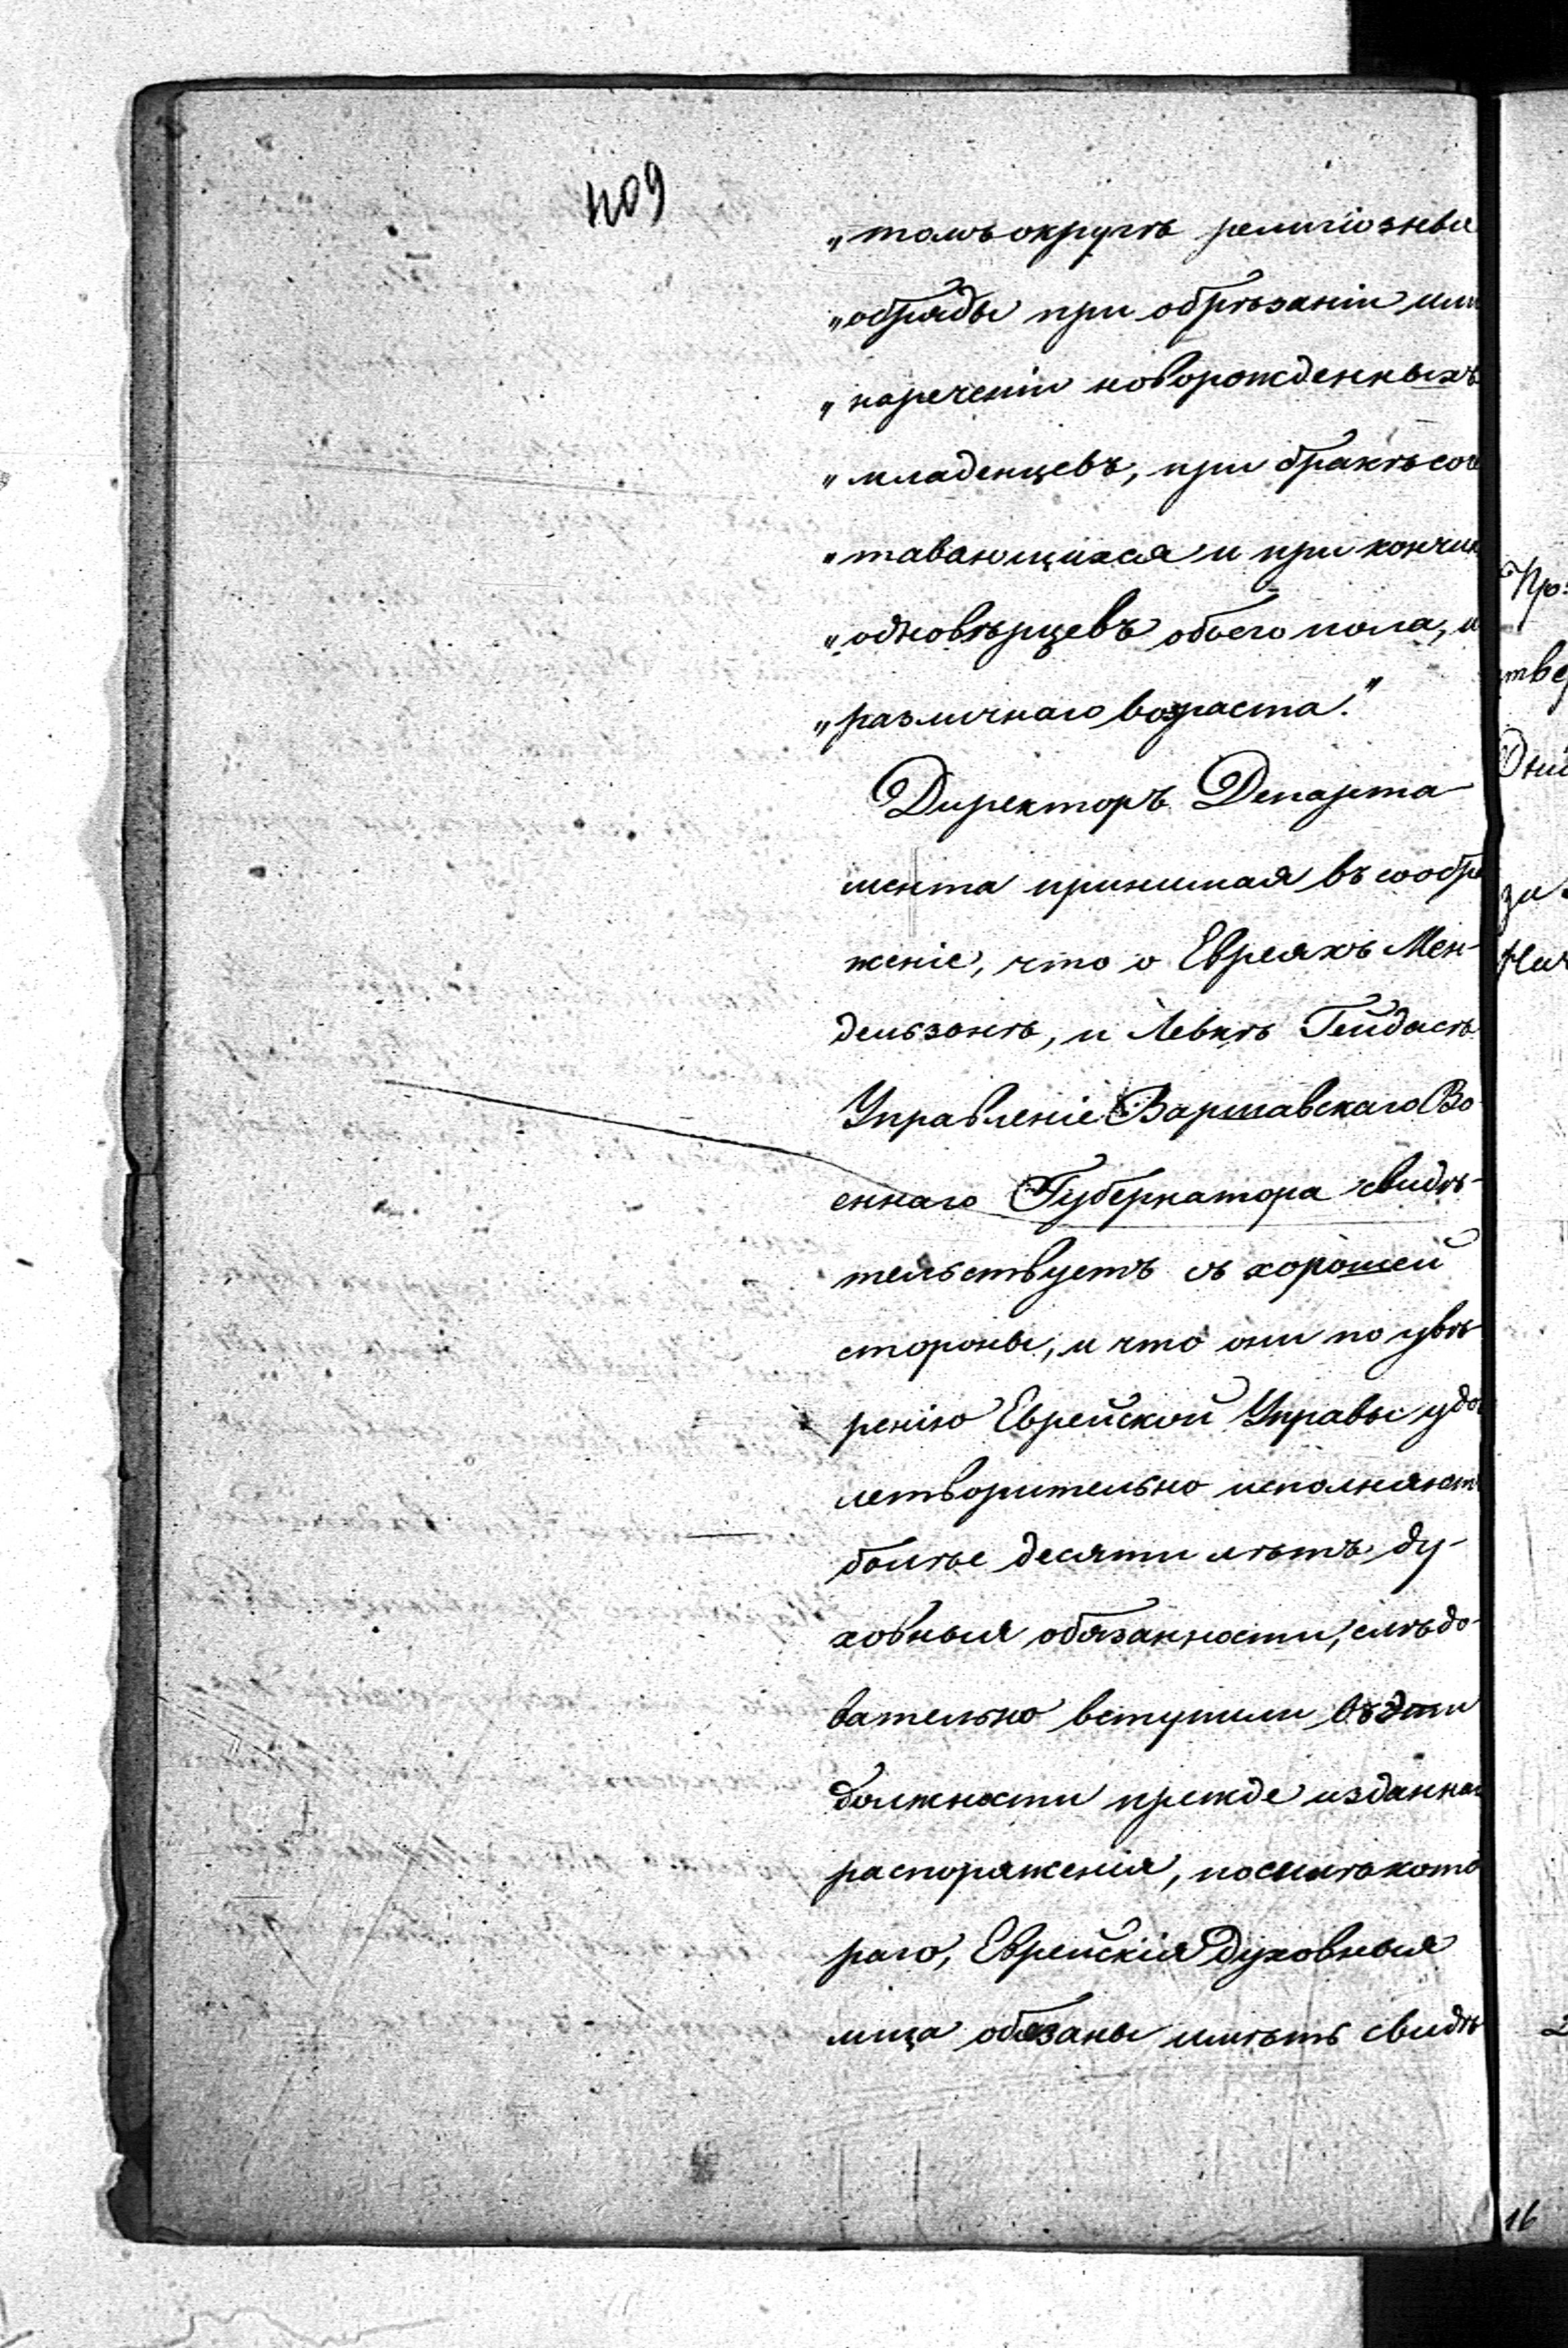 409
„томъ округѣ религіозные
„обряды при обрѣзаніи или
„нареченіи новорожденныхъ
„младенцевъ, при бракѣ соче
„тавающихся и при кончин
„одновѣрцевъ обоего пола, и
„различнаго возраста."
Директоръ Департа-
мента принимая въ сообра
женіе, что о Евреяхъ Мен-
дельзонѣ, и Левкѣ Гейдасѣ
Управленіе Варшавскаго Во-
еннаго Губернатора свидѣ-
тельствуетъ съ хорошей
стороны, и что они по увѣ-
ренію Еврейской Управы удо
летворительно исполняютъ
болѣе десяти лѣтъ ду-
ховныя обязанности, слѣдо-
вательно вступили въ эти
должности прежде изданна
распоряженія, по силѣ кото
раго, Еврейскія Духовныя
лица обязаны имѣть свидѣ
Пр:
тве
Дни
за
На
16